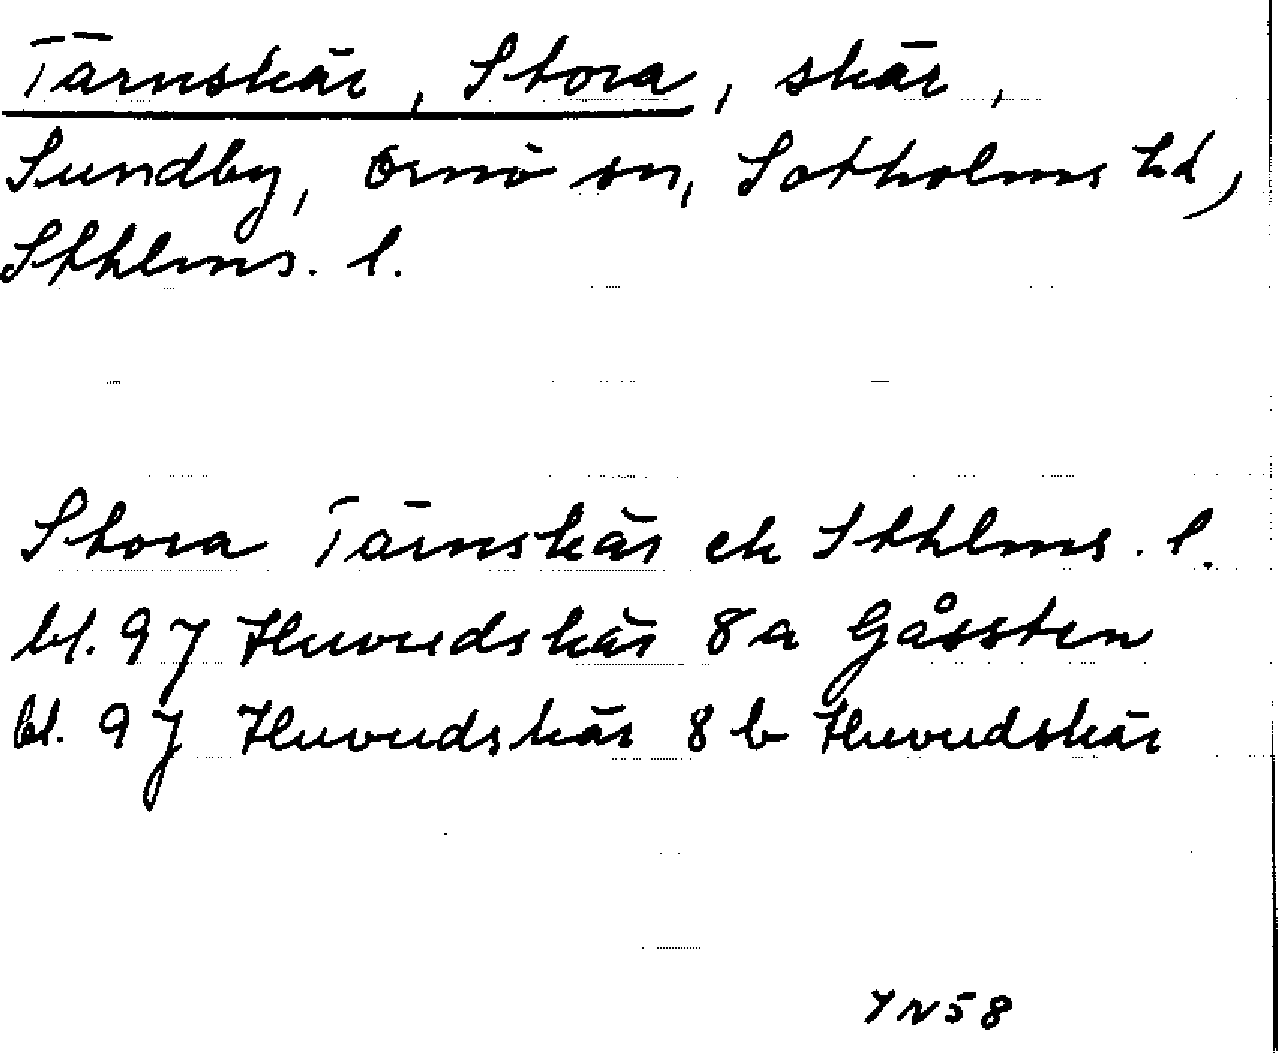 Tärnskär, Stora, skär,
Sundby, Ornö sn, Sotholms hd,
Sthlms. l.
Stora Tärnskär ek Sthlms. l.
bl. 97 Huvudskär 8a Gåssten
bl. 97 Huvudskär 8b Huvudskär
YN58